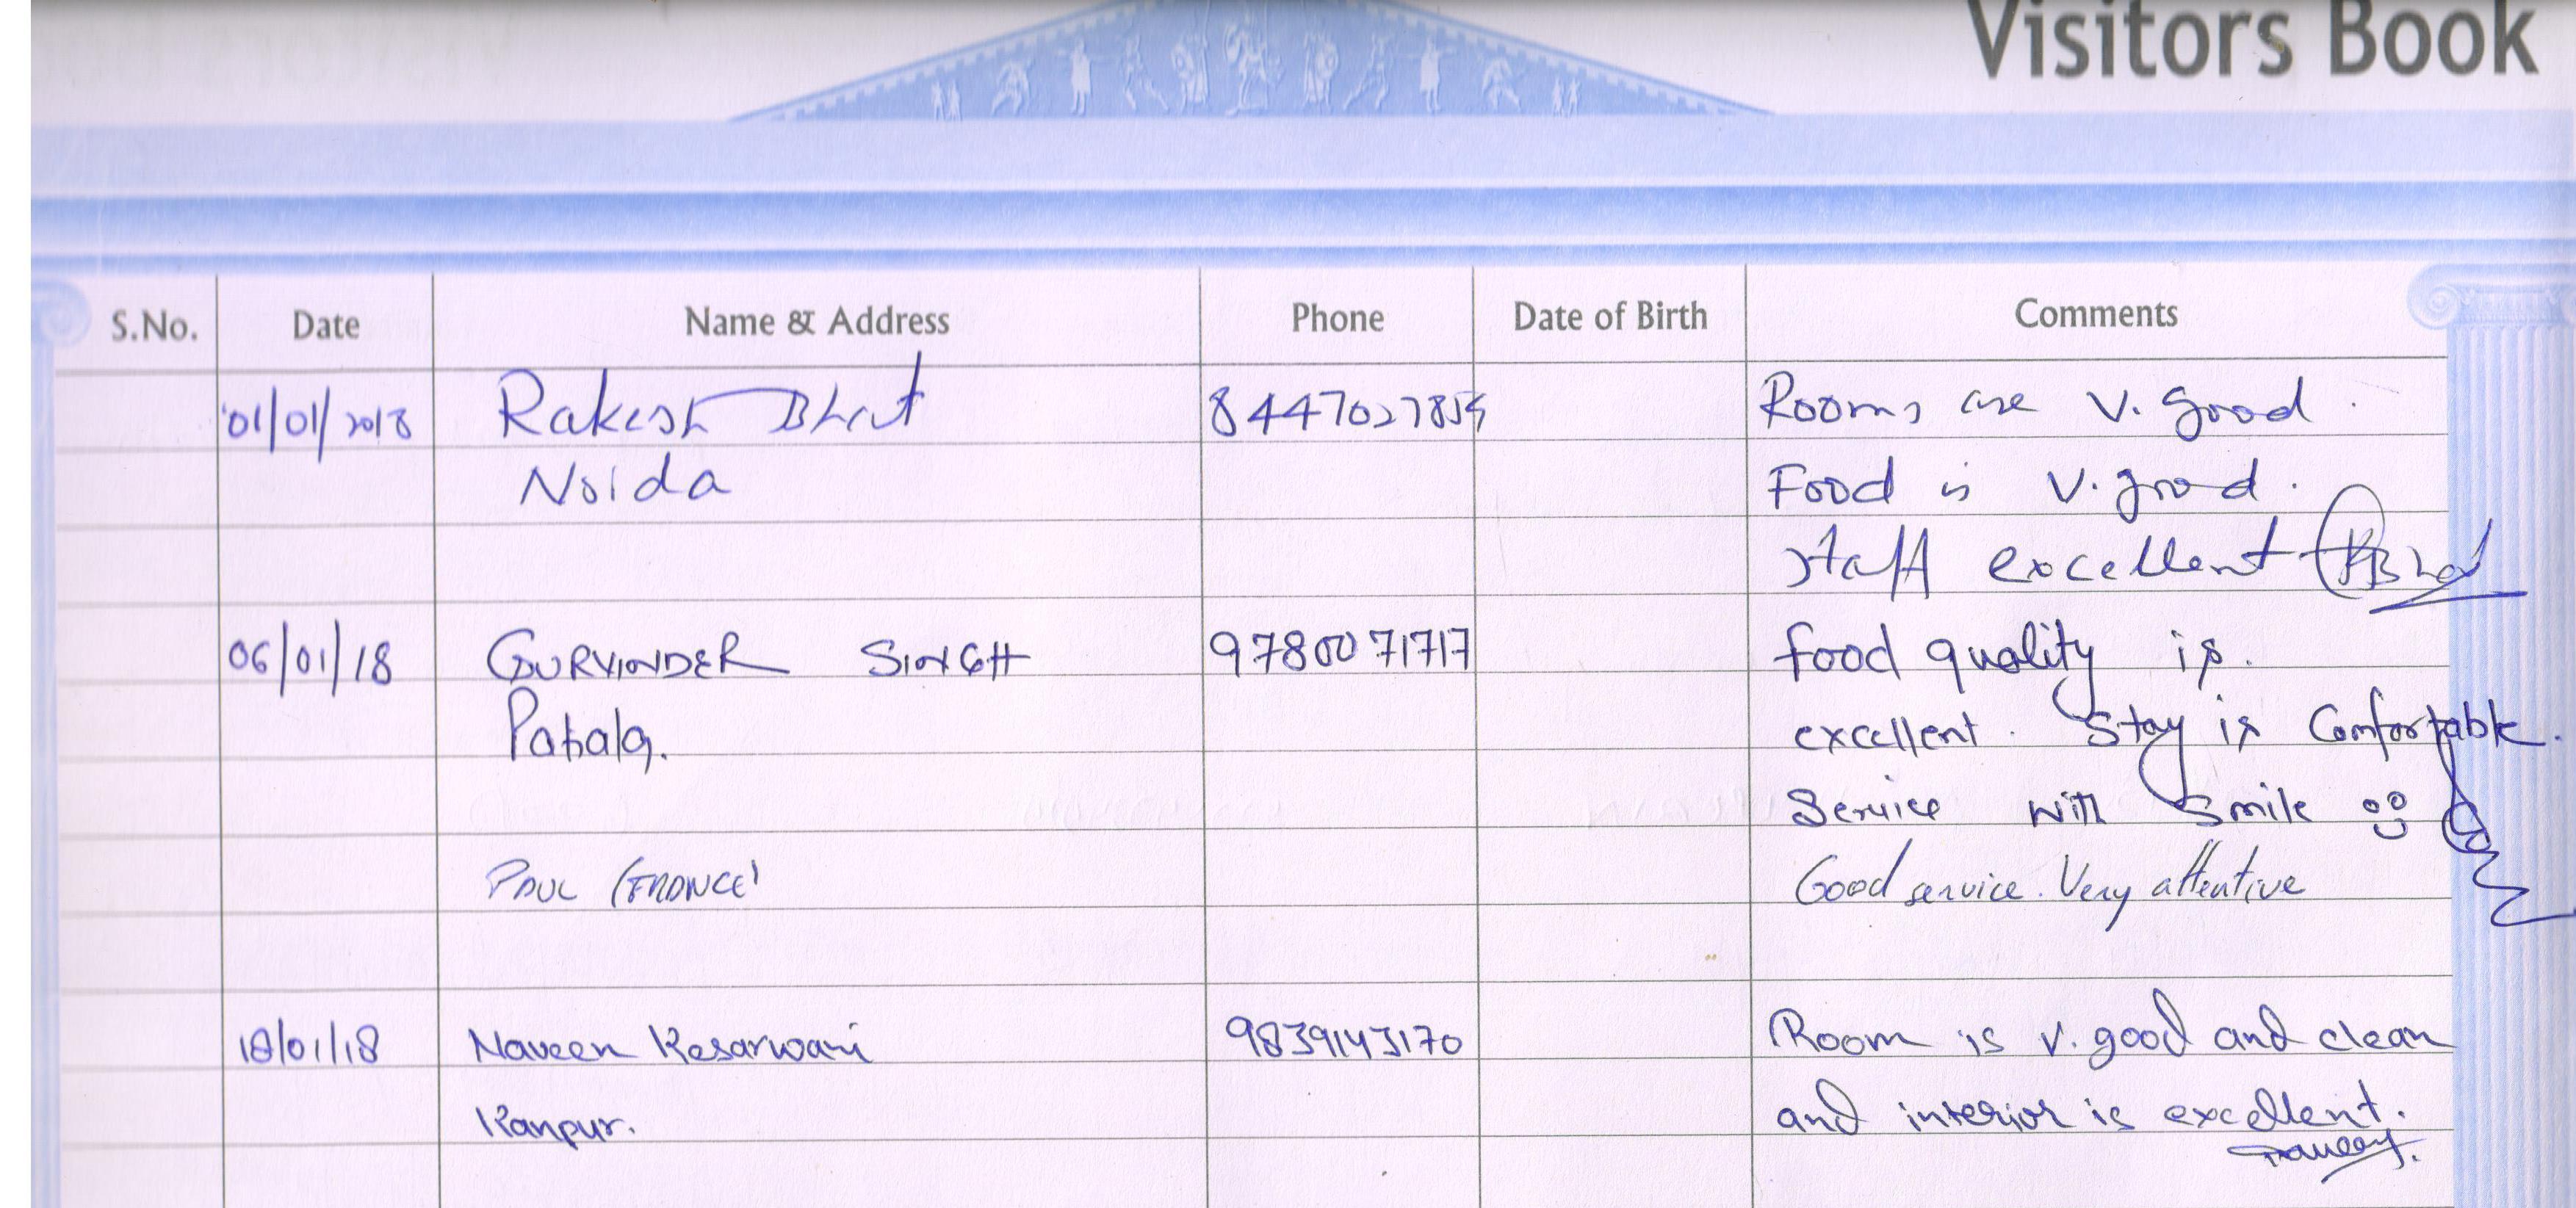 Visitors Book
S.No. Date Name & Address Phone Date of Birth Comments
01/01/2018 Rakesh Bhat 8447027854 Rooms are v. good.
Noida Food is v. good.
Staff excellent
06/01/18 GURVINDER SINGH 9780071717 food quality is.
excellent. Stay is Comfortable.
Service with Smile
PAUL (FRANCE) Good service. Very attentive
18/01/18 Naveen Kesarwani 9839143170 Room is v. good and clean
Kanpur. and interior is excellent.
Naveen